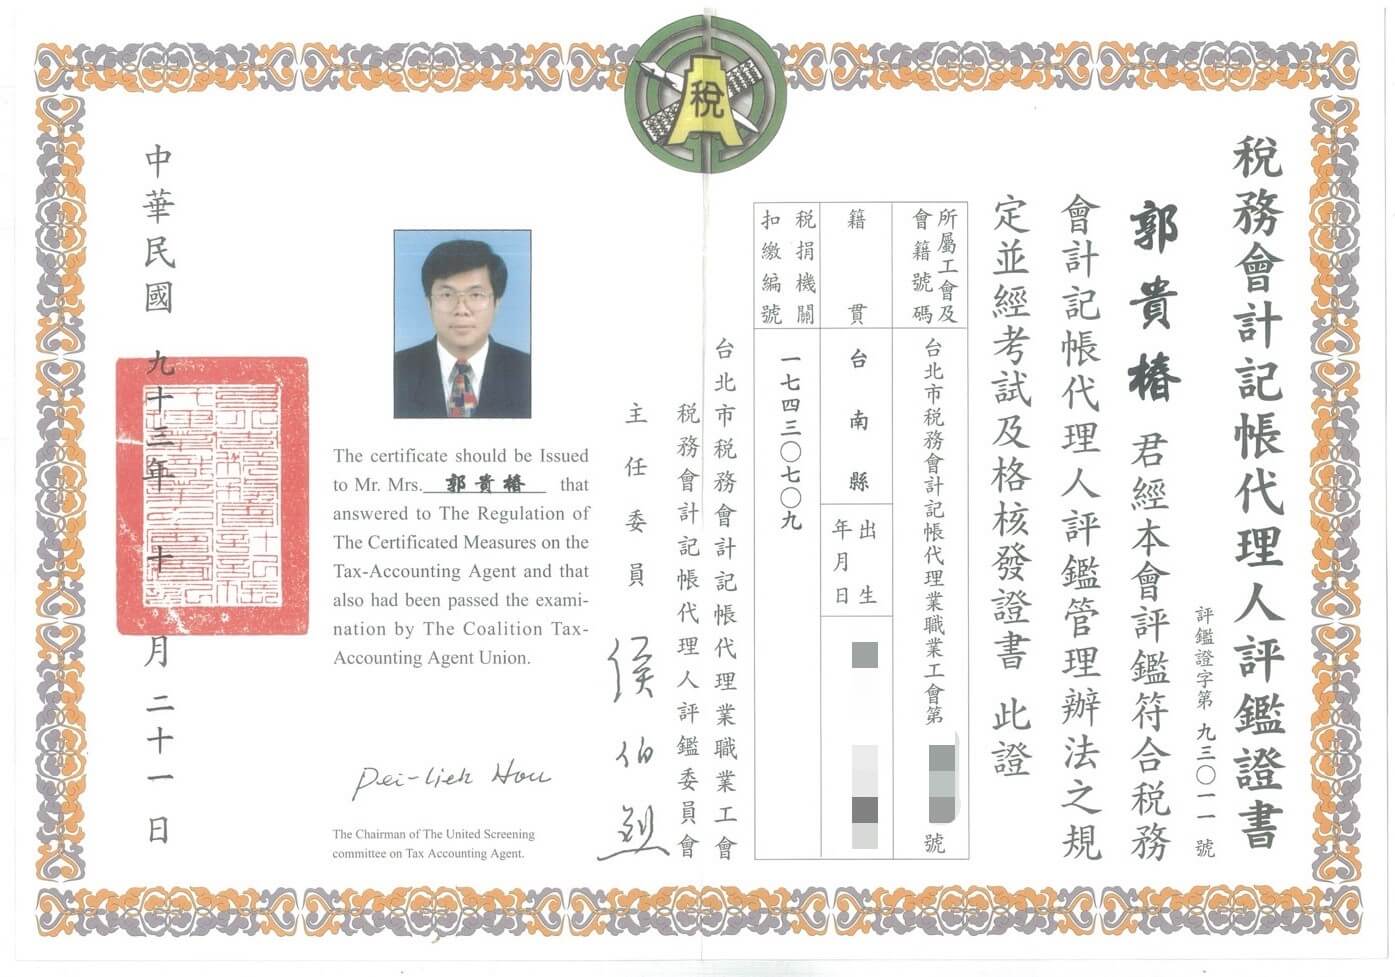 稅
稅務會計記帳代理人評鑑證書
評鑑證字第九三〇一一號
郭貴椿君經本會評鑑符合稅務
會計記帳代理人評鑑管理辦法之規
定並經考試及格核發證書 此證
所屬工會及
會籍號碼
台北市稅務會計記帳代理業職業工會第
號
籍貫
台南縣
出生
年月日
稅捐機關
扣繳編號
一七四三〇七〇九
台北市稅務會計記帳代理業職業工會
稅務會計記帳代理人評鑑委員會
主任委員
侯伯烈
The certificate should be Issued
to Mr. Mrs. 郭貴椿 that
answered to The Regulation of
The Certificated Measures on the
Tax-Accounting Agent and that
also had been passed the exami-
nation by The Coalition Tax-
Accounting Agent Union.
Pei-lieh Hou
The Chairman of The United Screening
committee on Tax Accounting Agent.
中華民國九十三年十月二十一日